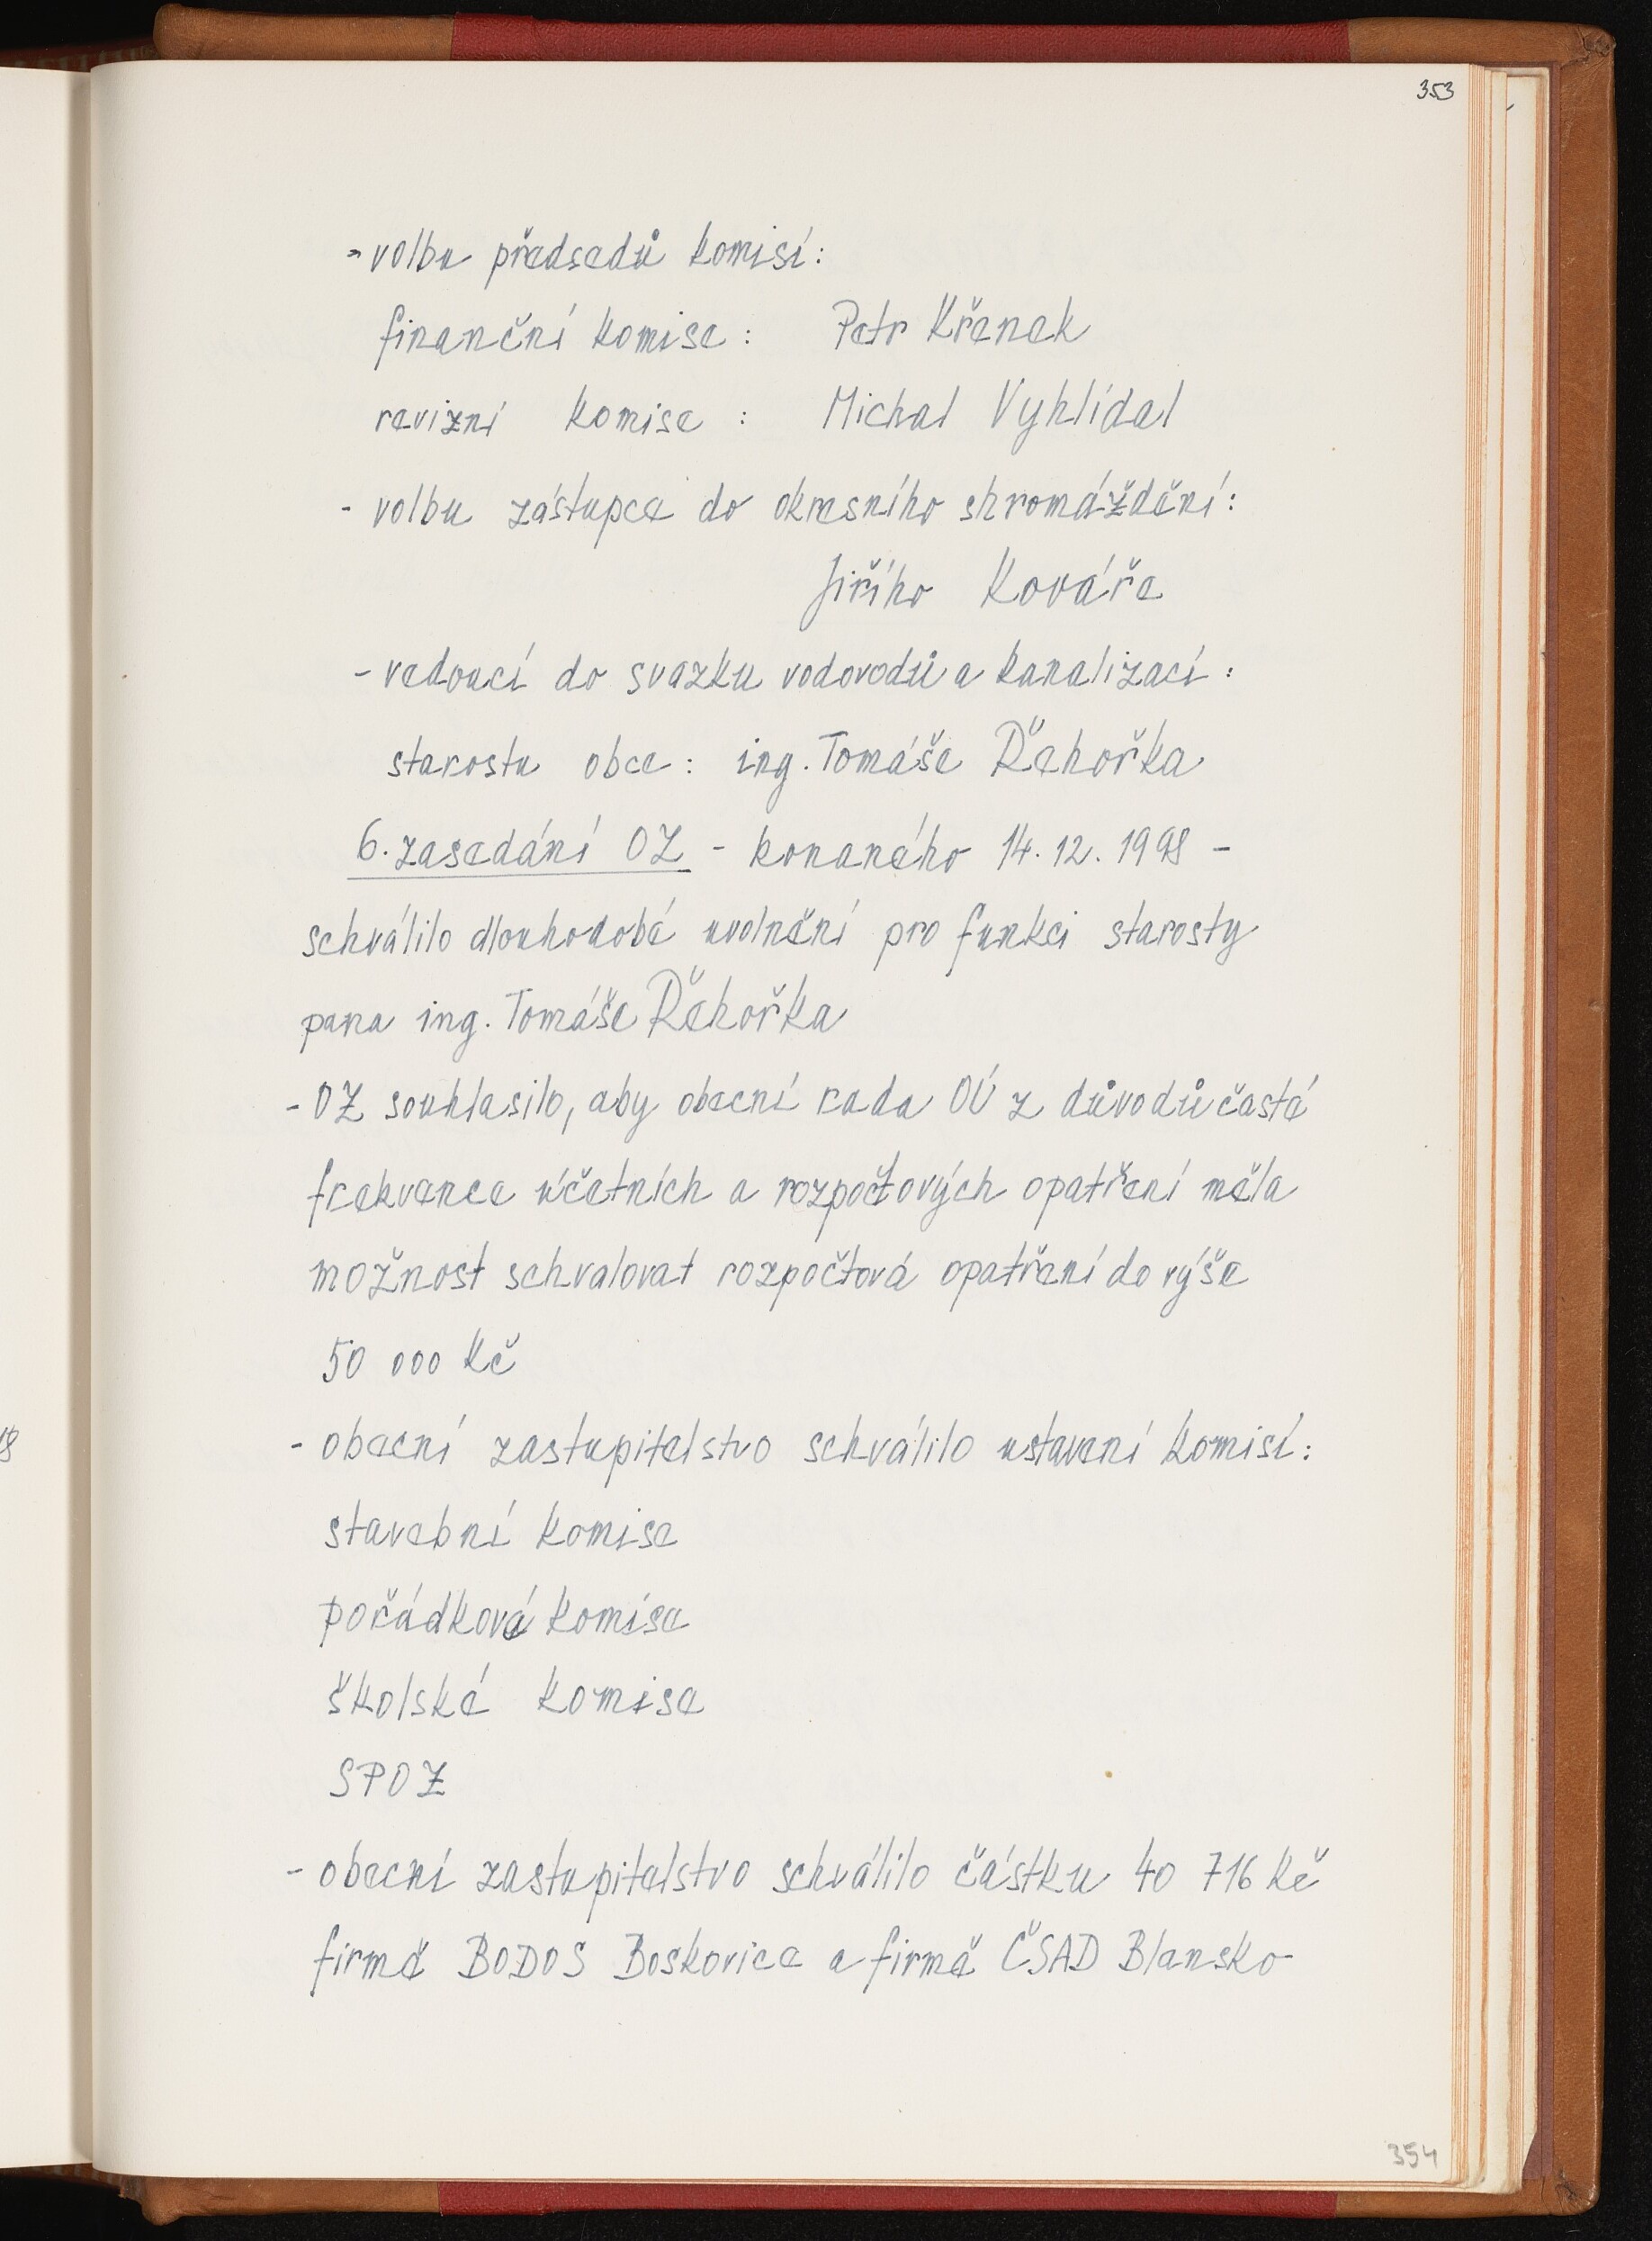 353
- volbu předsedů komisí:
finanční komise: Petr Křenek
revizní komise: Michal Vyhlídal
- volbu zástupce do okresního shromáždění:
Jiřího Kováře
- vedoucí do svazku vodovodů a kanalizací:
starostu obce: ing. Tomáše Řehořka
6. zasedání OZ - konaného 14. 12. 1998 -
schválilo dlouhodobé uvolnění pro funkci starosty
pana ing. Tomáše Řehořka
- OZ souhlasilo, aby obecní rada OÚ z důvodů časté
frekvence účetních a rozpočtových opatření měla
možnost schvalovat rozpočtová opatření do výše
50 000 Kč
- obecní zastupitelstvo schválilo ustavení komisí:
stavební komise
pořádková komise
školská komise
SPOZ
- obecní zastupitelstvo schválilo částku 40 716 Kč
firmě BODOS Boskovice a firmě ČSAD Blansko
354